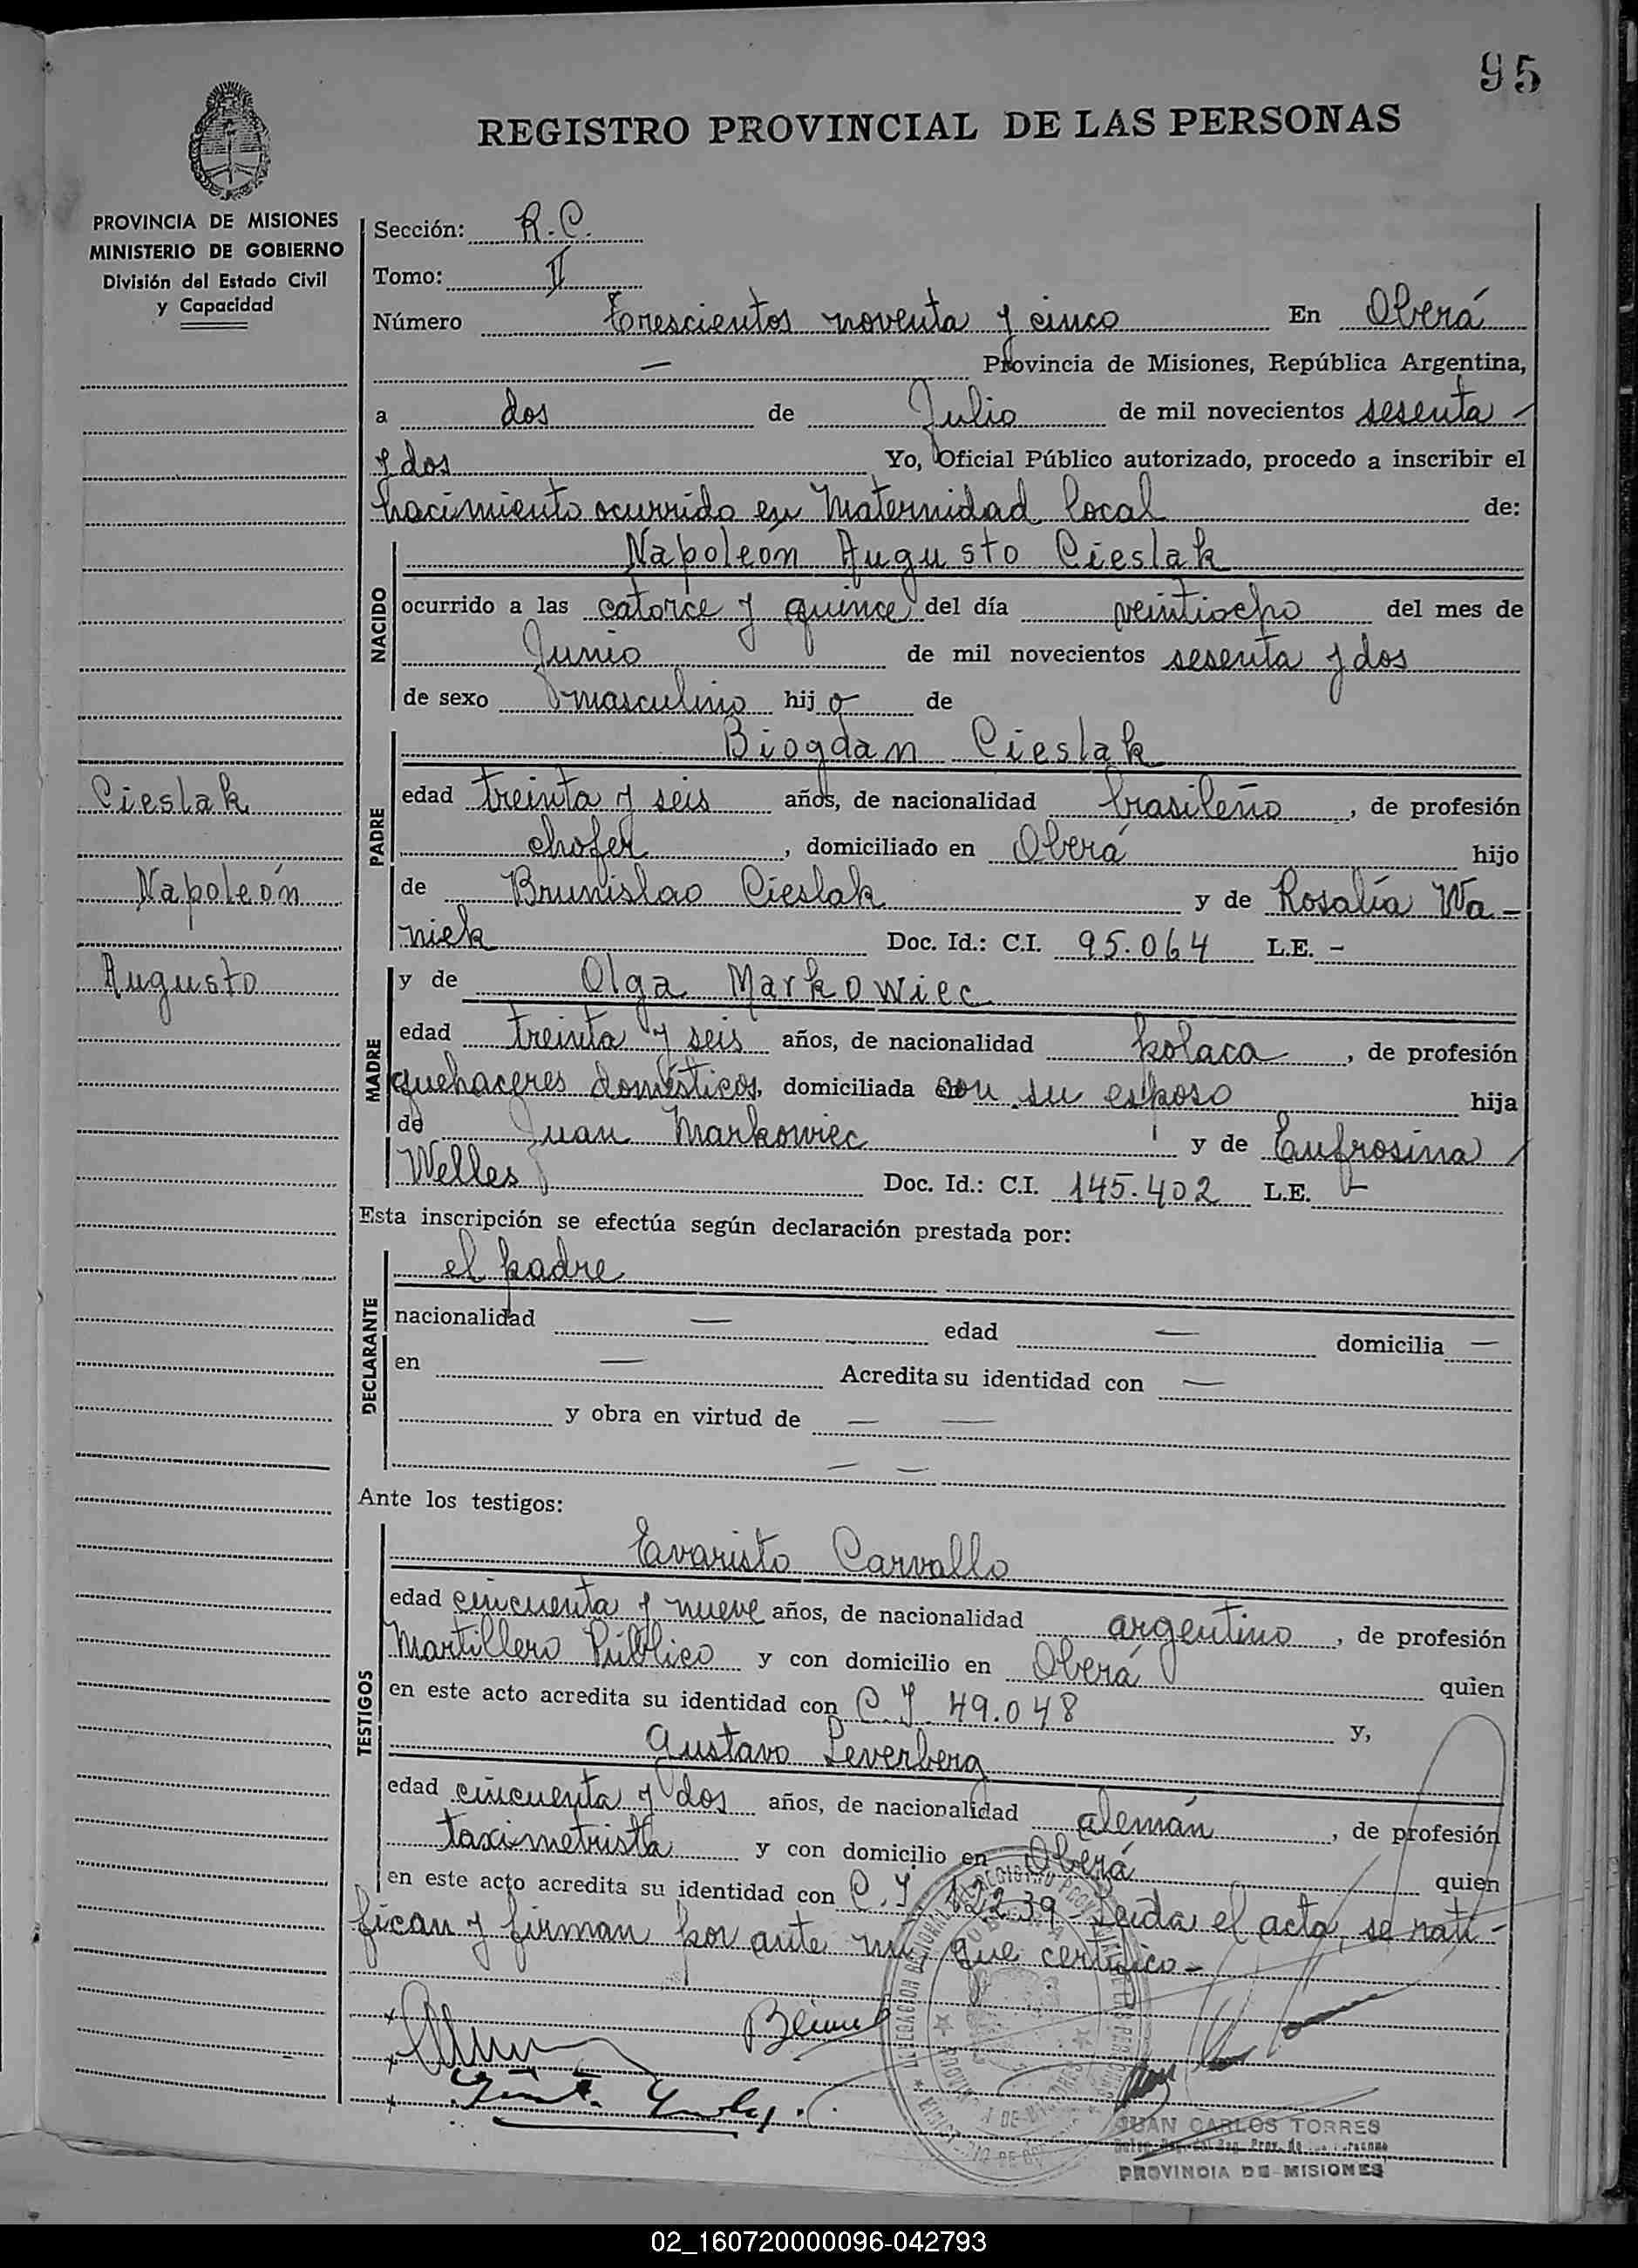 95
REGISTRO PROVINCIAL DE LAS PERSONAS
PROVINCIA DE MISIONES
MINISTERIO DE GOBIERNO
División del Estado Civil
y Capacidad
Cieslak
Napoleón
Augusto
Sección: R.C.
Tomo: II
Número Trescientos noventa y cinco En Oberá
— Provincia de Misiones, República Argentina,
a dos de Julio de mil novecientos sesenta -
y dos Yo, Oficial Público autorizado, procedo a inscribir el
nacimiento ocurrido en Maternidad Local de:
NACIDO
Napoleón Augusto Cieslak
ocurrido a las catorce y quince del día veintiocho del mes de
Junio de mil novecientos sesenta y dos
de sexo masculino hijo de
PADRE
Biogdan Cieslak
edad treinta y seis años, de nacionalidad brasileño, de profesión
chofer, domiciliado en Oberá hijo
de Brunislao Cieslak y de Rosalía Wa-
niek Doc. Id.: C.I. 95.064 L.E. -
MADRE
y de Olga Markowiec
edad treinta y seis años, de nacionalidad polaca, de profesión
quehaceres domésticos, domiciliada con su esposo hija
de Juan Markowiec y de Eufrosina
Welles Doc. Id.: C.I. 145.402 L.E. -
Esta inscripción se efectúa según declaración prestada por:
DECLARANTE
el padre
nacionalidad — edad — domicilia —
en — Acredita su identidad con —
y obra en virtud de — —
— —
Ante los testigos:
TESTIGOS
Evaristo Carvallo
edad cincuenta y nueve años, de nacionalidad argentino, de profesión
Martillero Público y con domicilio en Oberá quien
en este acto acredita su identidad con C.I. 49.048 y,
Gustavo Leverberg
edad cincuenta y dos años, de nacionalidad alemán, de profesión
taximetrista y con domicilio en Oberá quien
en este acto acredita su identidad con C.I. 12239 Leída el acta, se rati-
fican y firman por ante mi, que certifico-
JUAN CARLOS TORRES
PROVINCIA DE MISIONES
02_160720000096-042793